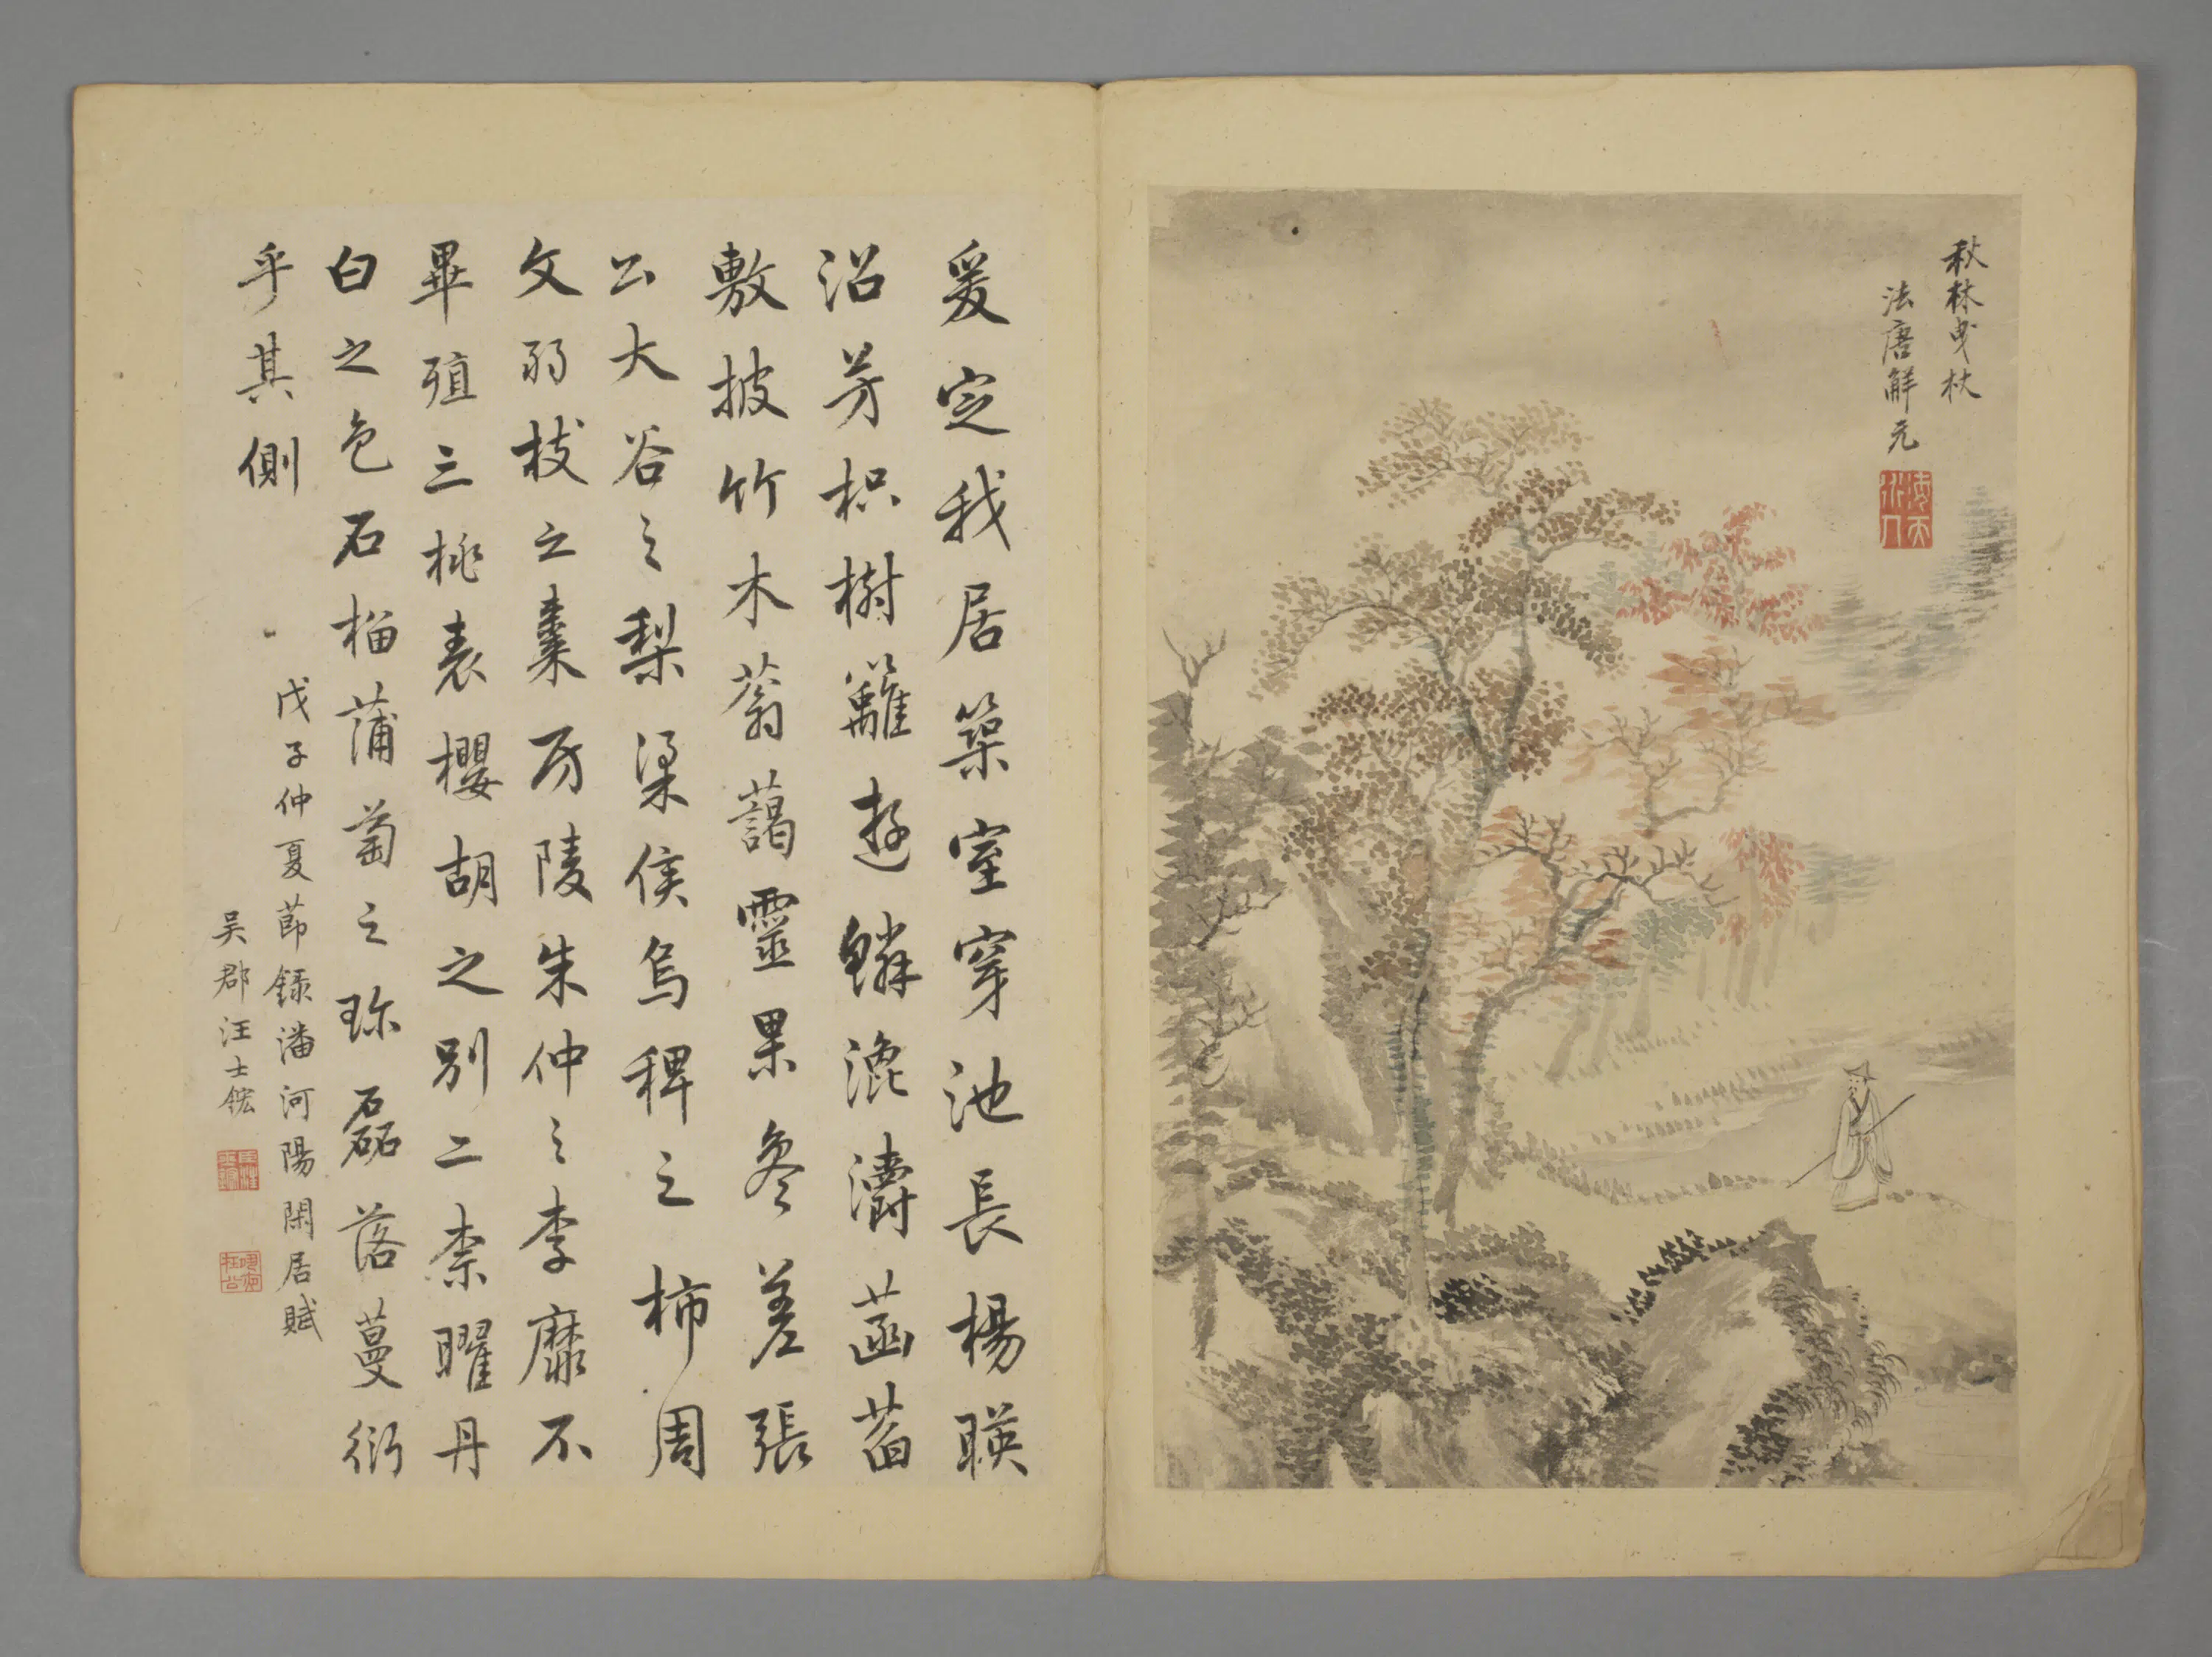 秋林曳杖
法唐解元
爰定我居築室穿池長楊暎
沼芳枳樹籬遊鱗瀺灂菡萏
敷披竹木蓊藹靈果參差張
公大谷之梨梁侯烏椑之柿周
文弱枝之棗房陵朱仲之李靡不
畢殖三桃表櫻胡之別二柰曜丹
白之色石榴蒲萄之珎磊落蔓衍
乎其側
戊子仲夏節録潘河陽閑居賦
吴郡汪士鋐